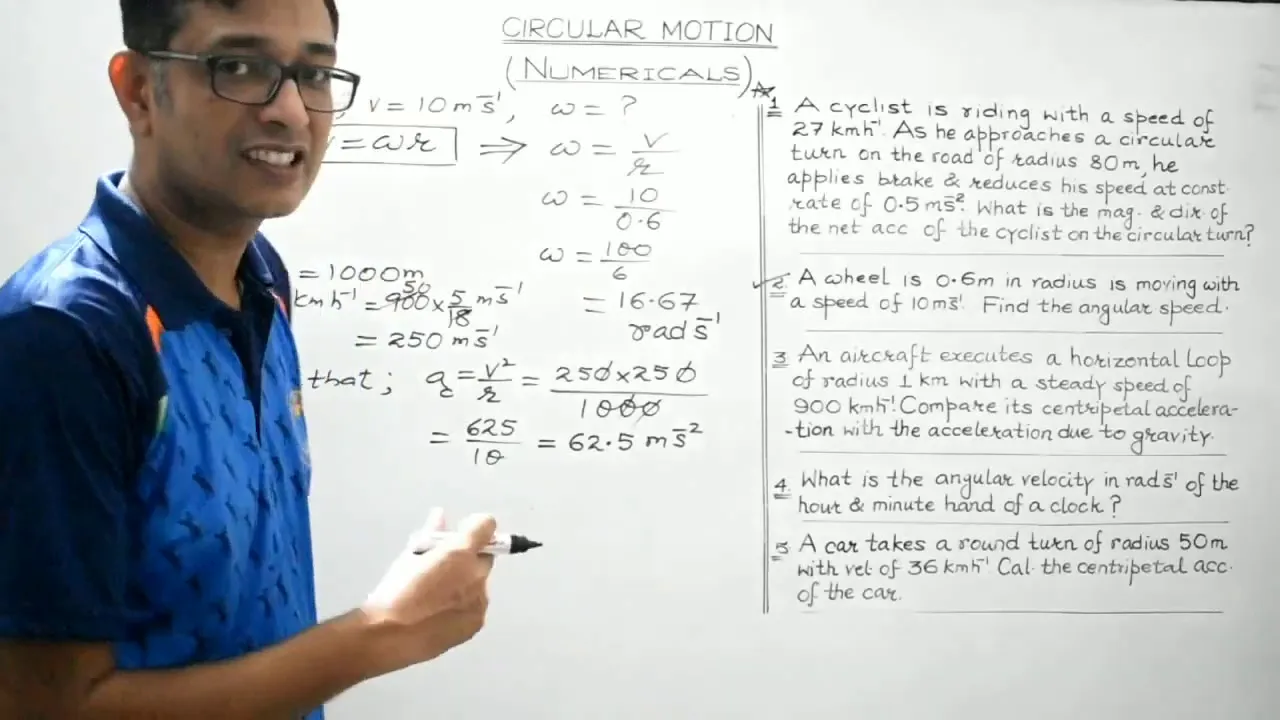 CIRCULAR MOTION
(NUMERICALS)
, v = 10 m s⁻¹, ω = ?
v = ωr ⇒ ω = v/r
ω = 10/0.6
ω = 100/6
= 16.67
rad s⁻¹
= 1000 m
50
km h⁻¹ = 900 × 5/18 m s⁻¹
= 250 m s⁻¹
that; a_c = v²/r = 250 × 250 / 1000
= 625/10 = 62.5 m s⁻²
1. A cyclist is riding with a speed of
27 kmh⁻¹. As he approaches a circular
turn on the road of radius 80m, he
applies brake & reduces his speed at const.
rate of 0.5 ms⁻². What is the mag. & dir. of
the net acc of the cyclist on the circular turn?
2. A wheel is 0.6m in radius is moving with
a speed of 10ms⁻¹. Find the angular speed.
3. An aircraft executes a horizontal loop
of radius 1 km with a steady speed of
900 kmh⁻¹. Compare its centripetal accelera-
-tion with the acceleration due to gravity.
4. What is the angular velocity in rad s⁻¹ of the
hour & minute hand of a clock?
5. A car takes a round turn of radius 50m
with vel of 36 kmh⁻¹. Cal. the centripetal acc.
of the car.